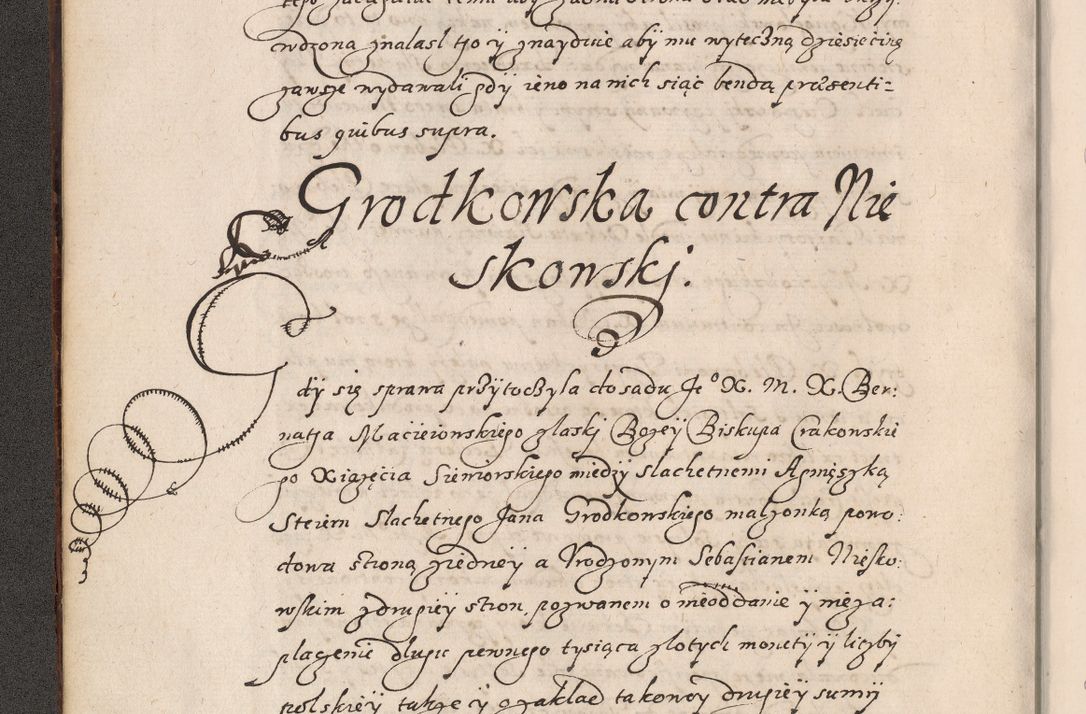 wdzona znalasl tjo ÿ znayduie abÿ mu wyteczną dziesiecinę
zawsze wydawali gdÿ ieno na nich siąc bendą prezenti=
bus quibus supra.
Grodkowska contra Nie
skowskj.
Gdÿ się sprawa przÿtoczyla do sadu Je° X. M. X. Ber:
natja Macieiowskiego zlaskj Bozeÿ Biskupa Crakowskie
go Xiązęcia Siewiorskiego miedzÿ slachetnemi Agnięszką
Steiern slachetnego Jana Grodkowskiego malzonką powo:
dowa stroną ziedneÿ a Vrodzonym Sebastianem Niesko:
wskim zdrugieÿ stron. pozwanem o nieoddanie ÿ nieza:
placenie dlugu pewnego tysiąca zlotych monetÿ ÿ liczbÿ
polskieÿ takze ÿ o zaklad takoweÿ drugieÿ sumÿ